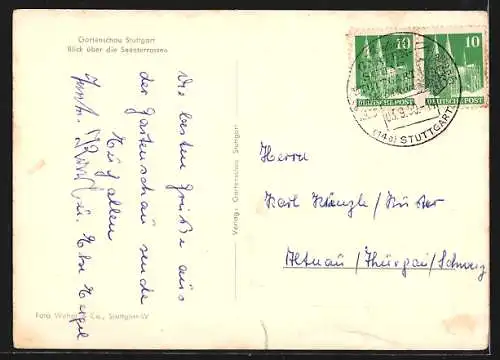 Gartenschau Stuttgart
Blick über die Seeterrassen
Die besten Grüße aus
der Gartenschau sende
Euch allen
u. Else
Foto Weber & Co., Stuttgart-W
Verlag: Gartenschau Stuttgart
10
DEUTSCHE POST
10
DEUTSCHE POST
(14a) STUTTGART
Herrn
Karl Künzle / Küster
Altnau / Thurgau / Schweiz